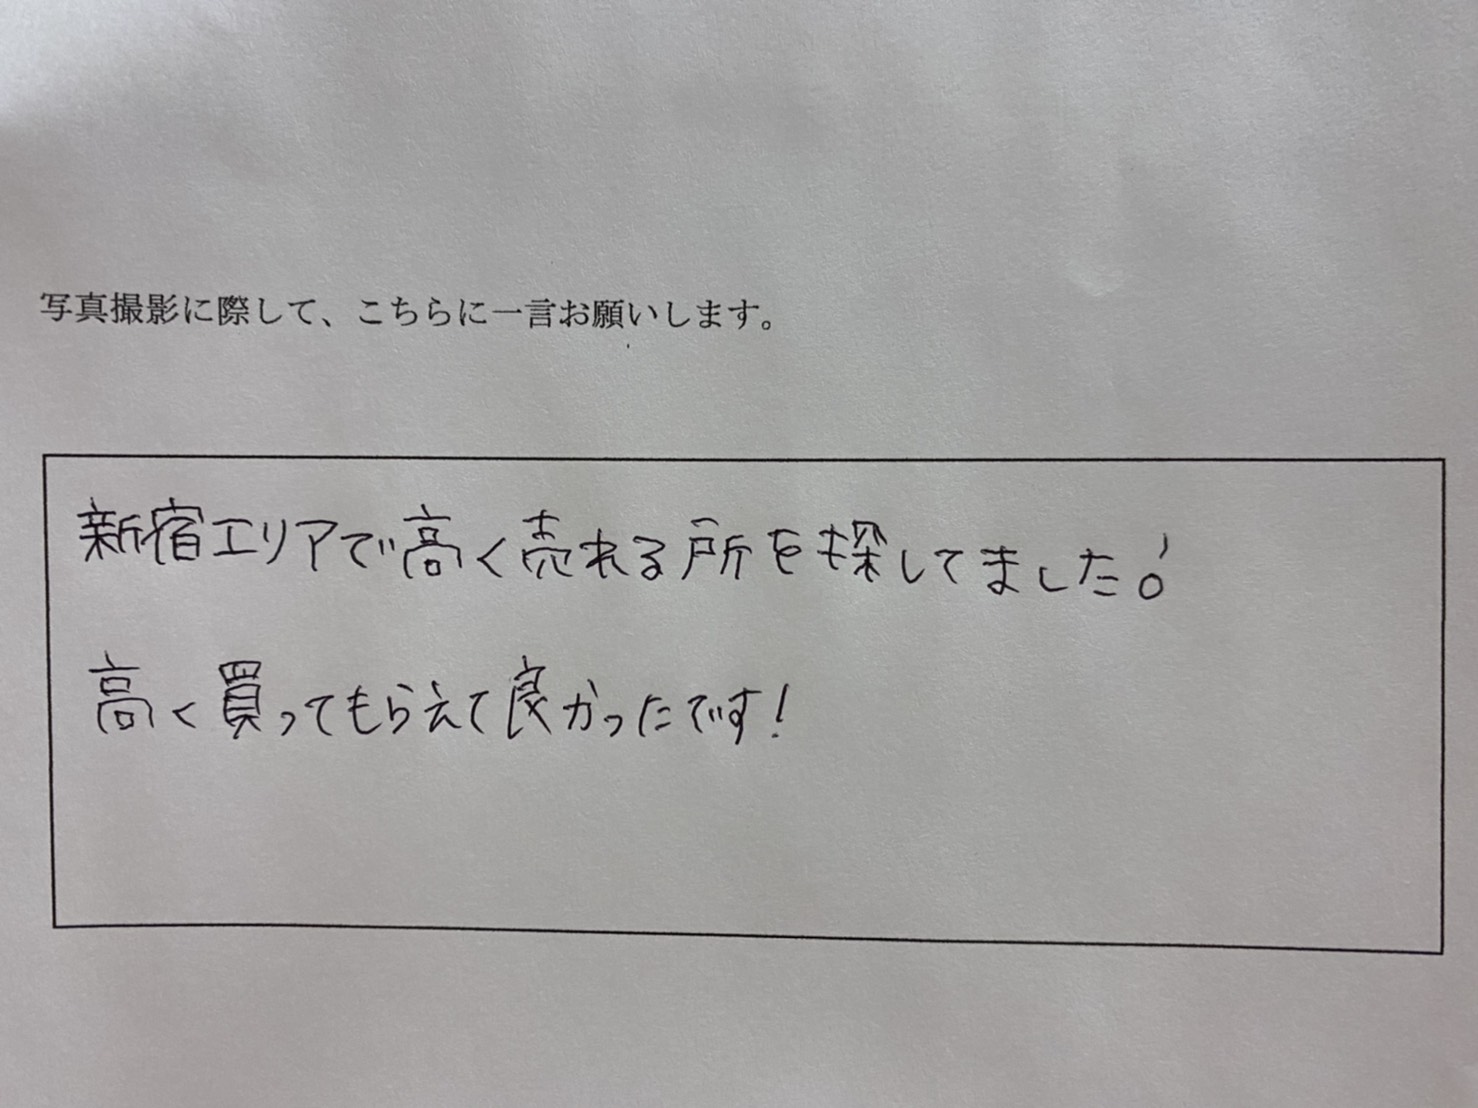 写真撮影に際して、こちらに一言お願いします。
新宿エリアで高く売れる所を探してました!
高く買ってもらえて良かったです!